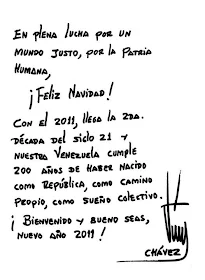 EN PLENA LUCHA POR UN
MUNDO JUSTO, POR LA PATRIA
HUMANA,
¡FELIZ NAVIDAD!
CON EL 2011, LLEGA LA 2DA.
DÉCADA DEL SIGLO 21 Y
NUESTRA VENEZUELA CUMPLE
200 AÑOS DE HABER NACIDO
COMO REPÚBLICA, COMO CAMINO
PROPIO, COMO SUEÑO COLECTIVO.
¡BIENVENIDO Y BUENO SEAS,
NUEVO AÑO 2011!
CHÁVEZ